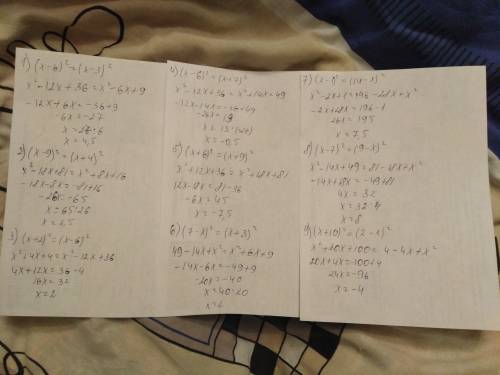 1) (x-6)² = (x-3)²
x²-12x+36 = x²-6x+9
-12x+6x = -36+9
-6x = -27
x = 27:6
x = 4,5
2) (x-9)² = (x+4)²
x²-18x+81 = x²+8x+16
-18x-8x = -81+16
-26x = -65
x = 65:26
x = 2,5
3) (x+2)² = (x-6)²
x²+4x+4 = x²-12x+36
4x+12x = 36-4
16x = 32
x = 2
4) (x-6)² = (x+7)²
x²-12x+36 = x²+14x+49
-12x-14x = -36+49
-26x = 13
x = -0,5
5) (x+6)² = (x+9)²
x²+12x+36 = x²+18x+81
12x-18x = 81-36
-6x = 45
x = -7,5
6) (7-x)² = (x+3)²
49-14x+x² = x²+6x+9
-14x-6x = -49+9
-20x = -40
x = 40:20
x = 2
7) (x-1)² = (14-x)²
x²-2x+1 = 196-28x+x²
-2x+28x = 196-1
26x = 195
x = 7,5
8) (x-7)² = (9-x)²
x²-14x+49 = 81-18x+x²
-14x+18x = -49+81
4x = 32
x = 32:4
x = 8
9) (x+10)² = (2-x)²
x²+20x+100 = 4-4x+x²
20x+4x = -100+4
24x = -96
x = -4